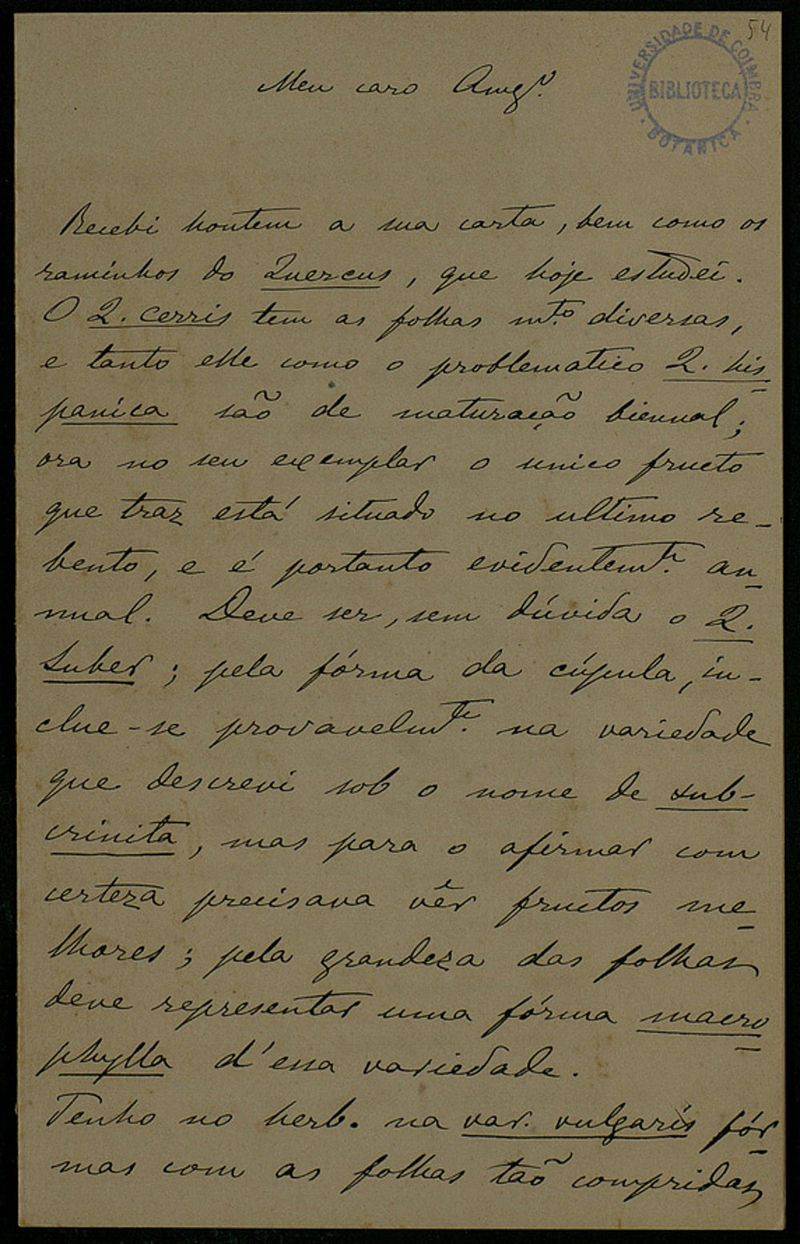 54
UNIVERSIDADE DE COIMBRA
BIBLIOTECA
BOTANICA
Meu caro Amgº.
Recebi hontem a sua carta, bem como os
raminhos do Quercus, que hoje estudei.
O Q. cerris tem as folhas mtº diversas,
e tanto elle como o problematico Q. his-
panica são de maturação biennal;
ora no seu exemplar o unico fructo
que traz está situado no ultimo re-
bento, e é portanto evidentemte. an-
nual. Deve ser, sem dúvida o Q.
Suber; pela fórma da cúpula, in-
clue-se provavelmte. na variedade
que descrevi sob o nome de sub-
crinita, mas para o afirmar com
certeza precisava vêr fructos me-
lhores; pela grandeza das folhas
deve representar uma fórma macro-
phylla d'essa variedade.
Tenho no herb. na var. vulgaris fór-
mas com as folhas tão compridas